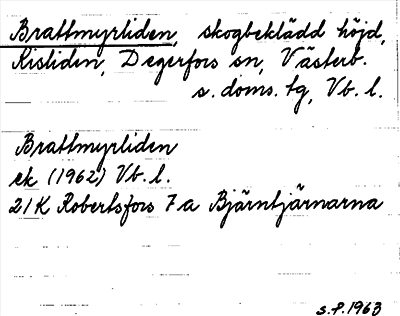 Brattmyrliden, skogbeklädd höjd,
Risliden, Degerfors sn, Västerb.
s. doms. tg, Vb. l.
Brattmyrliden
ek (1962) Vb. l.
21K Robertsfors 7a Bjärntjärnarna
s.f. 1963